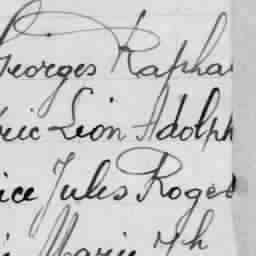 Georges Rapha
ric Léon Adolph
ice Jules Roger
Marie Th